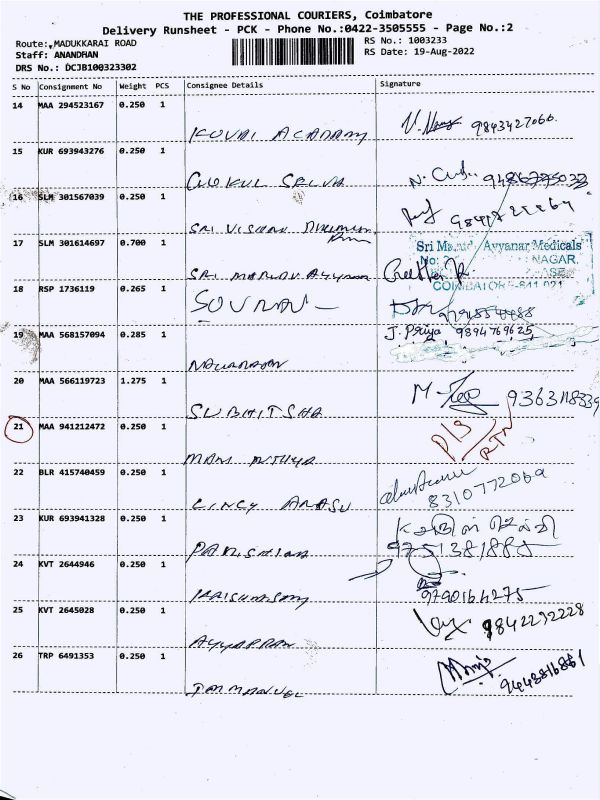 THE PROFESSIONAL COURIERS, Coimbatore
Delivery Runsheet - PCK - Phone No.:0422-3505555 - Page No.:2
Route: MADUKKARAI ROAD
RS No.: 1003233
Staff: ANANDHAN
RS Date: 19-Aug-2022
DRS No.: DCJB100323302
S No Consignment No Weight PCS Consignee Details Signature
14 MAA 294523167 0.250 1
KOVAI ACADAMY 9843427066
15 KUR 693943276 0.250 1
GOKUL SELVA
16 SLM 301567039 0.250 1
SRI VISHNU
17 SLM 301614697 0.700 1
Sri Ayyanar Medicals
NAGAR,
COIMBATORE-641 021
SRI
18 RSP 1736119 0.265 1
19 MAA 568157094 0.285 1
J. Priya 9894769625
20 MAA 566119723 1.275 1
SUBHITSHA 9363118339
21 MAA 941212472 0.250 1
D/S
RTN
MANI NITHYA
22 BLR 415740459 0.250 1
8310772069
LINCY ARASU
23 KUR 693941328 0.250 1
9751381885
24 KVT 2644946 0.250 1
9790164275
KRISHNASAMY
25 KVT 2645028 0.250 1
9842232228
AYYAPPAN
26 TRP 6491353 0.250 1
9443816861